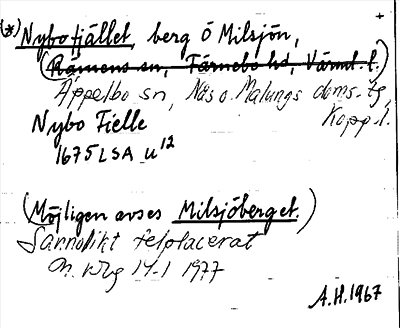 (*) Nybofjället, berg Ö Milsjön,
(Rämens sn, Färnebo hd, Värml. l.)
Äppelbo sn, Nås o. Malungs doms. tg,
Kopp. l.
Nybo Fielle
1675 LSA U12
(Möjligen avses Milsjöberget.)
Sannolikt felplacerat
14-1 1977
A.H. 1967